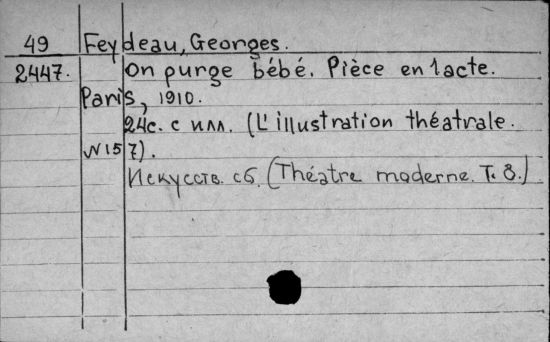 49 Feydeau, Georges.
2447. On purge bébé. Pièce en 1 acte.
Paris, 1910.
24с. с илл. (L'illustration théatrale.
N157).
Искусств. сб. (Théatre moderne. T. 8.)